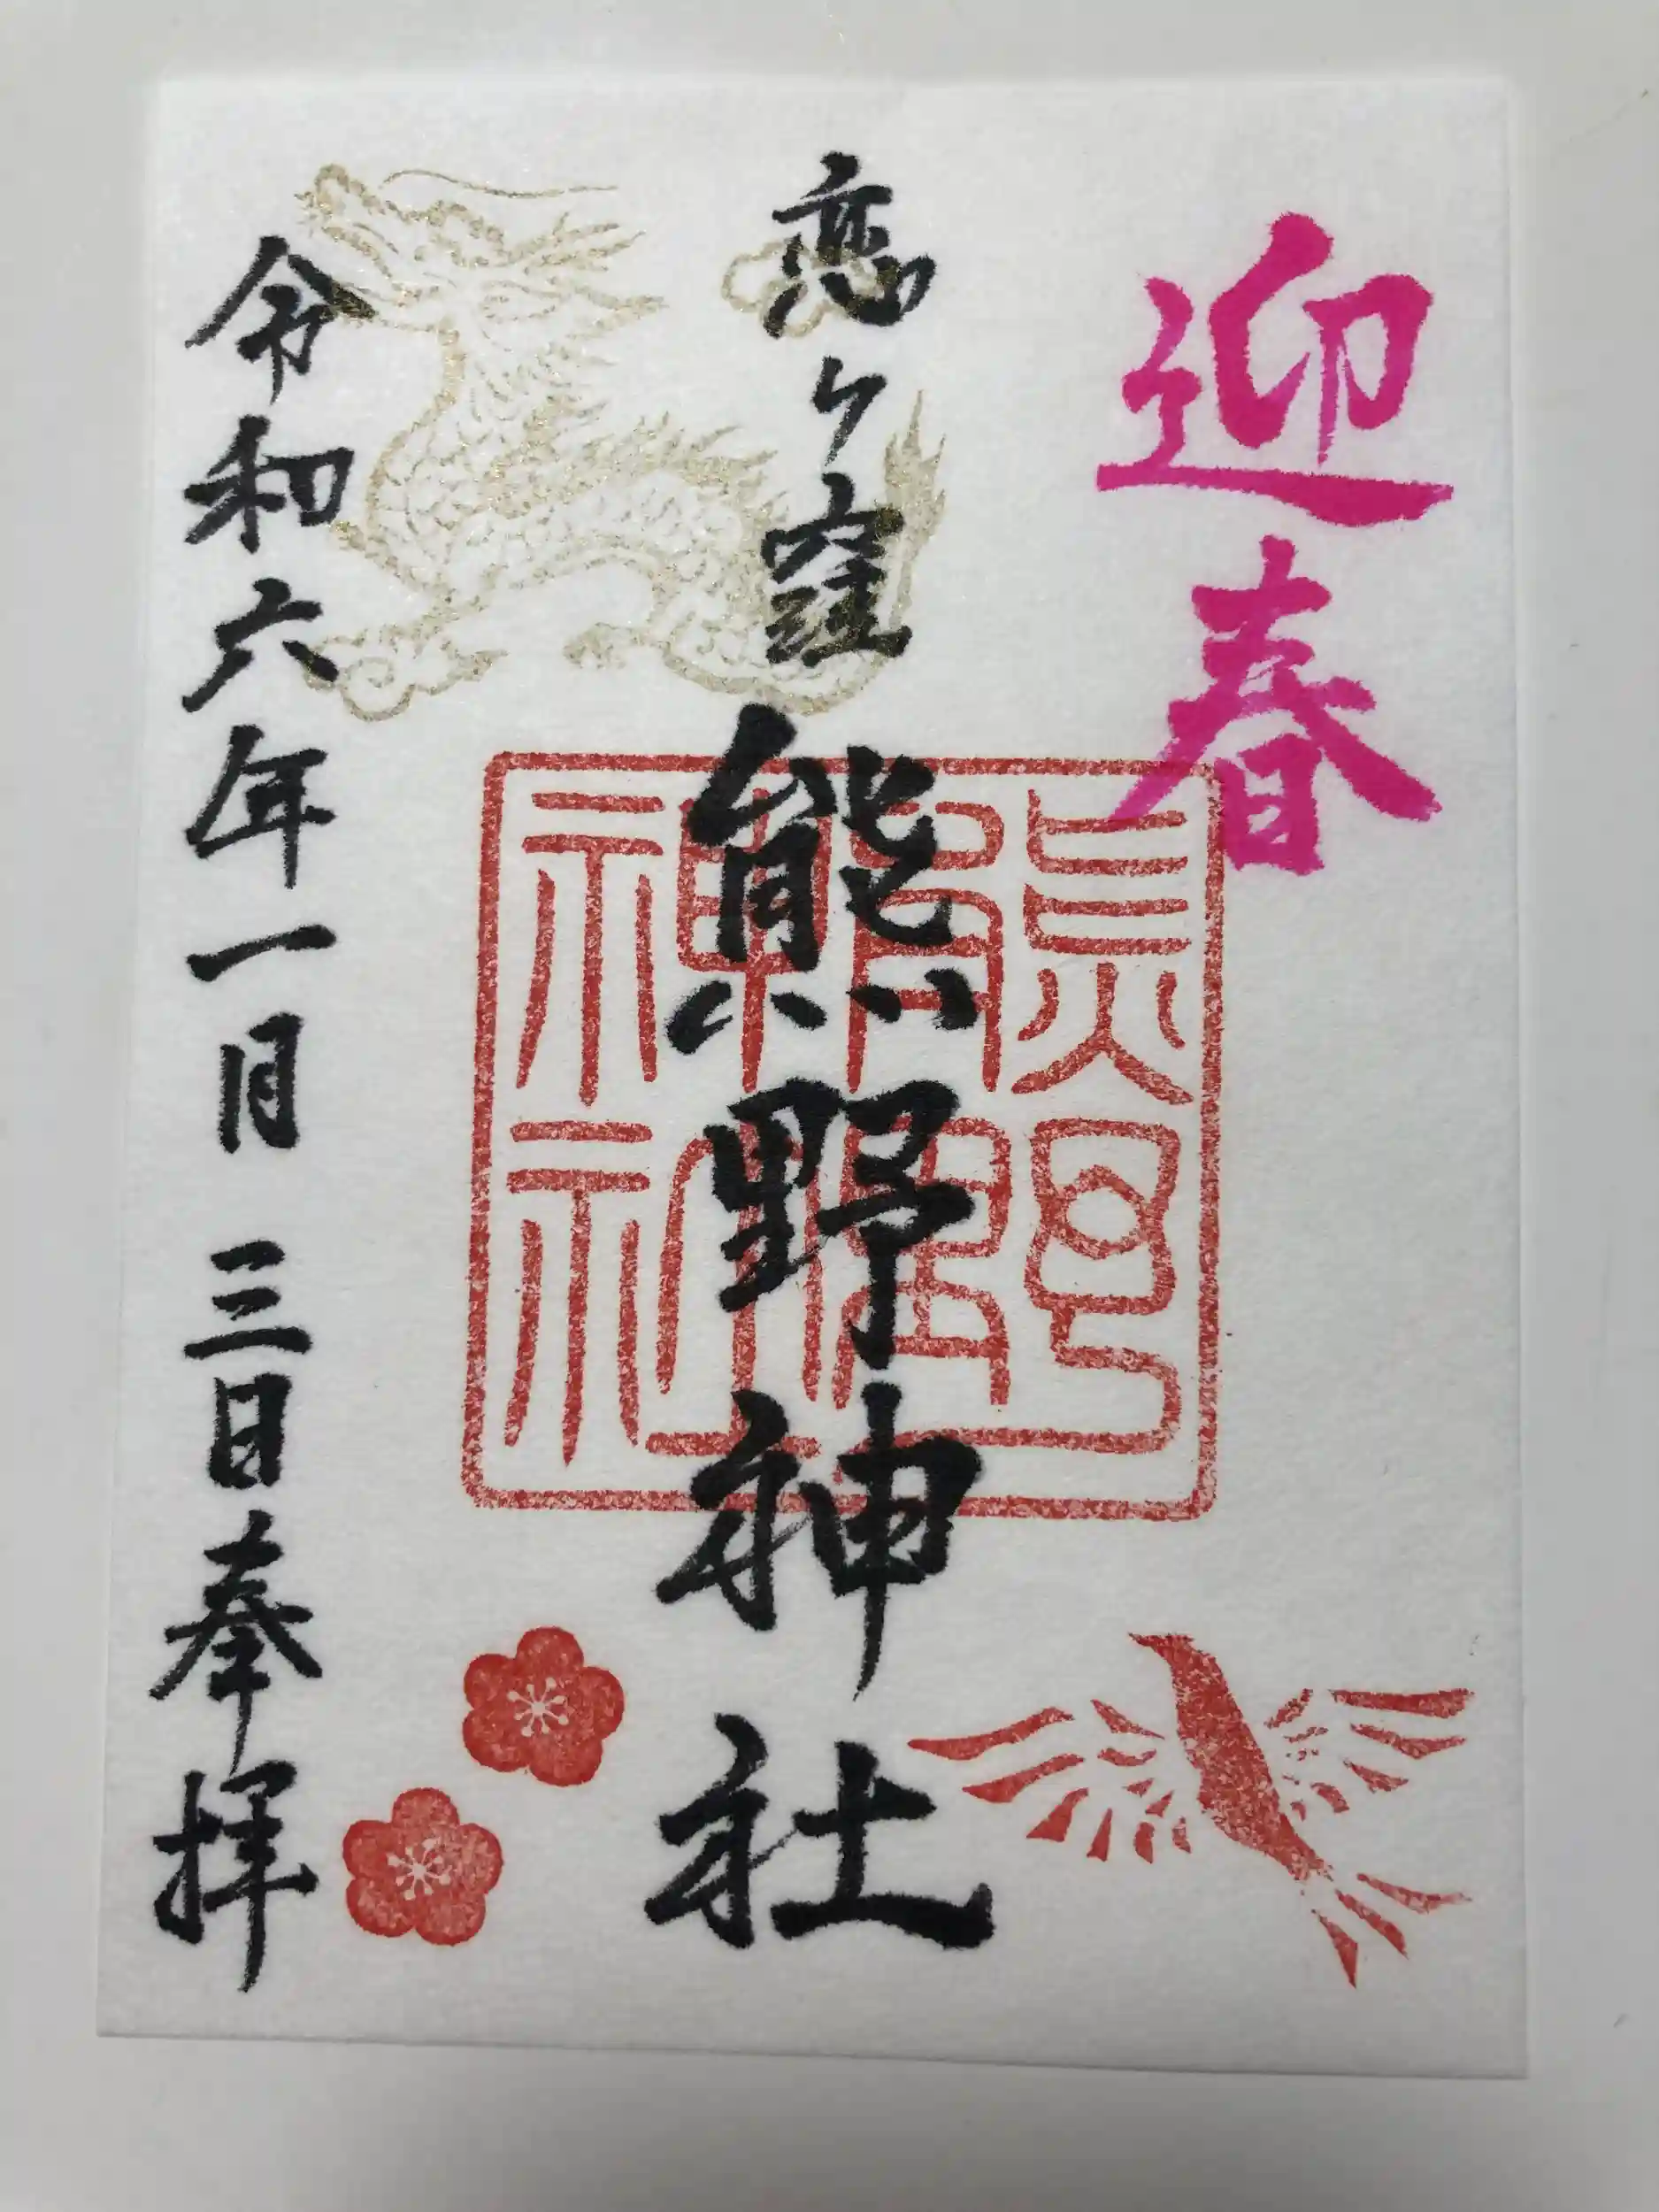 迎春
恋ヶ窪
熊野神社
令和六年一月三日奉拝